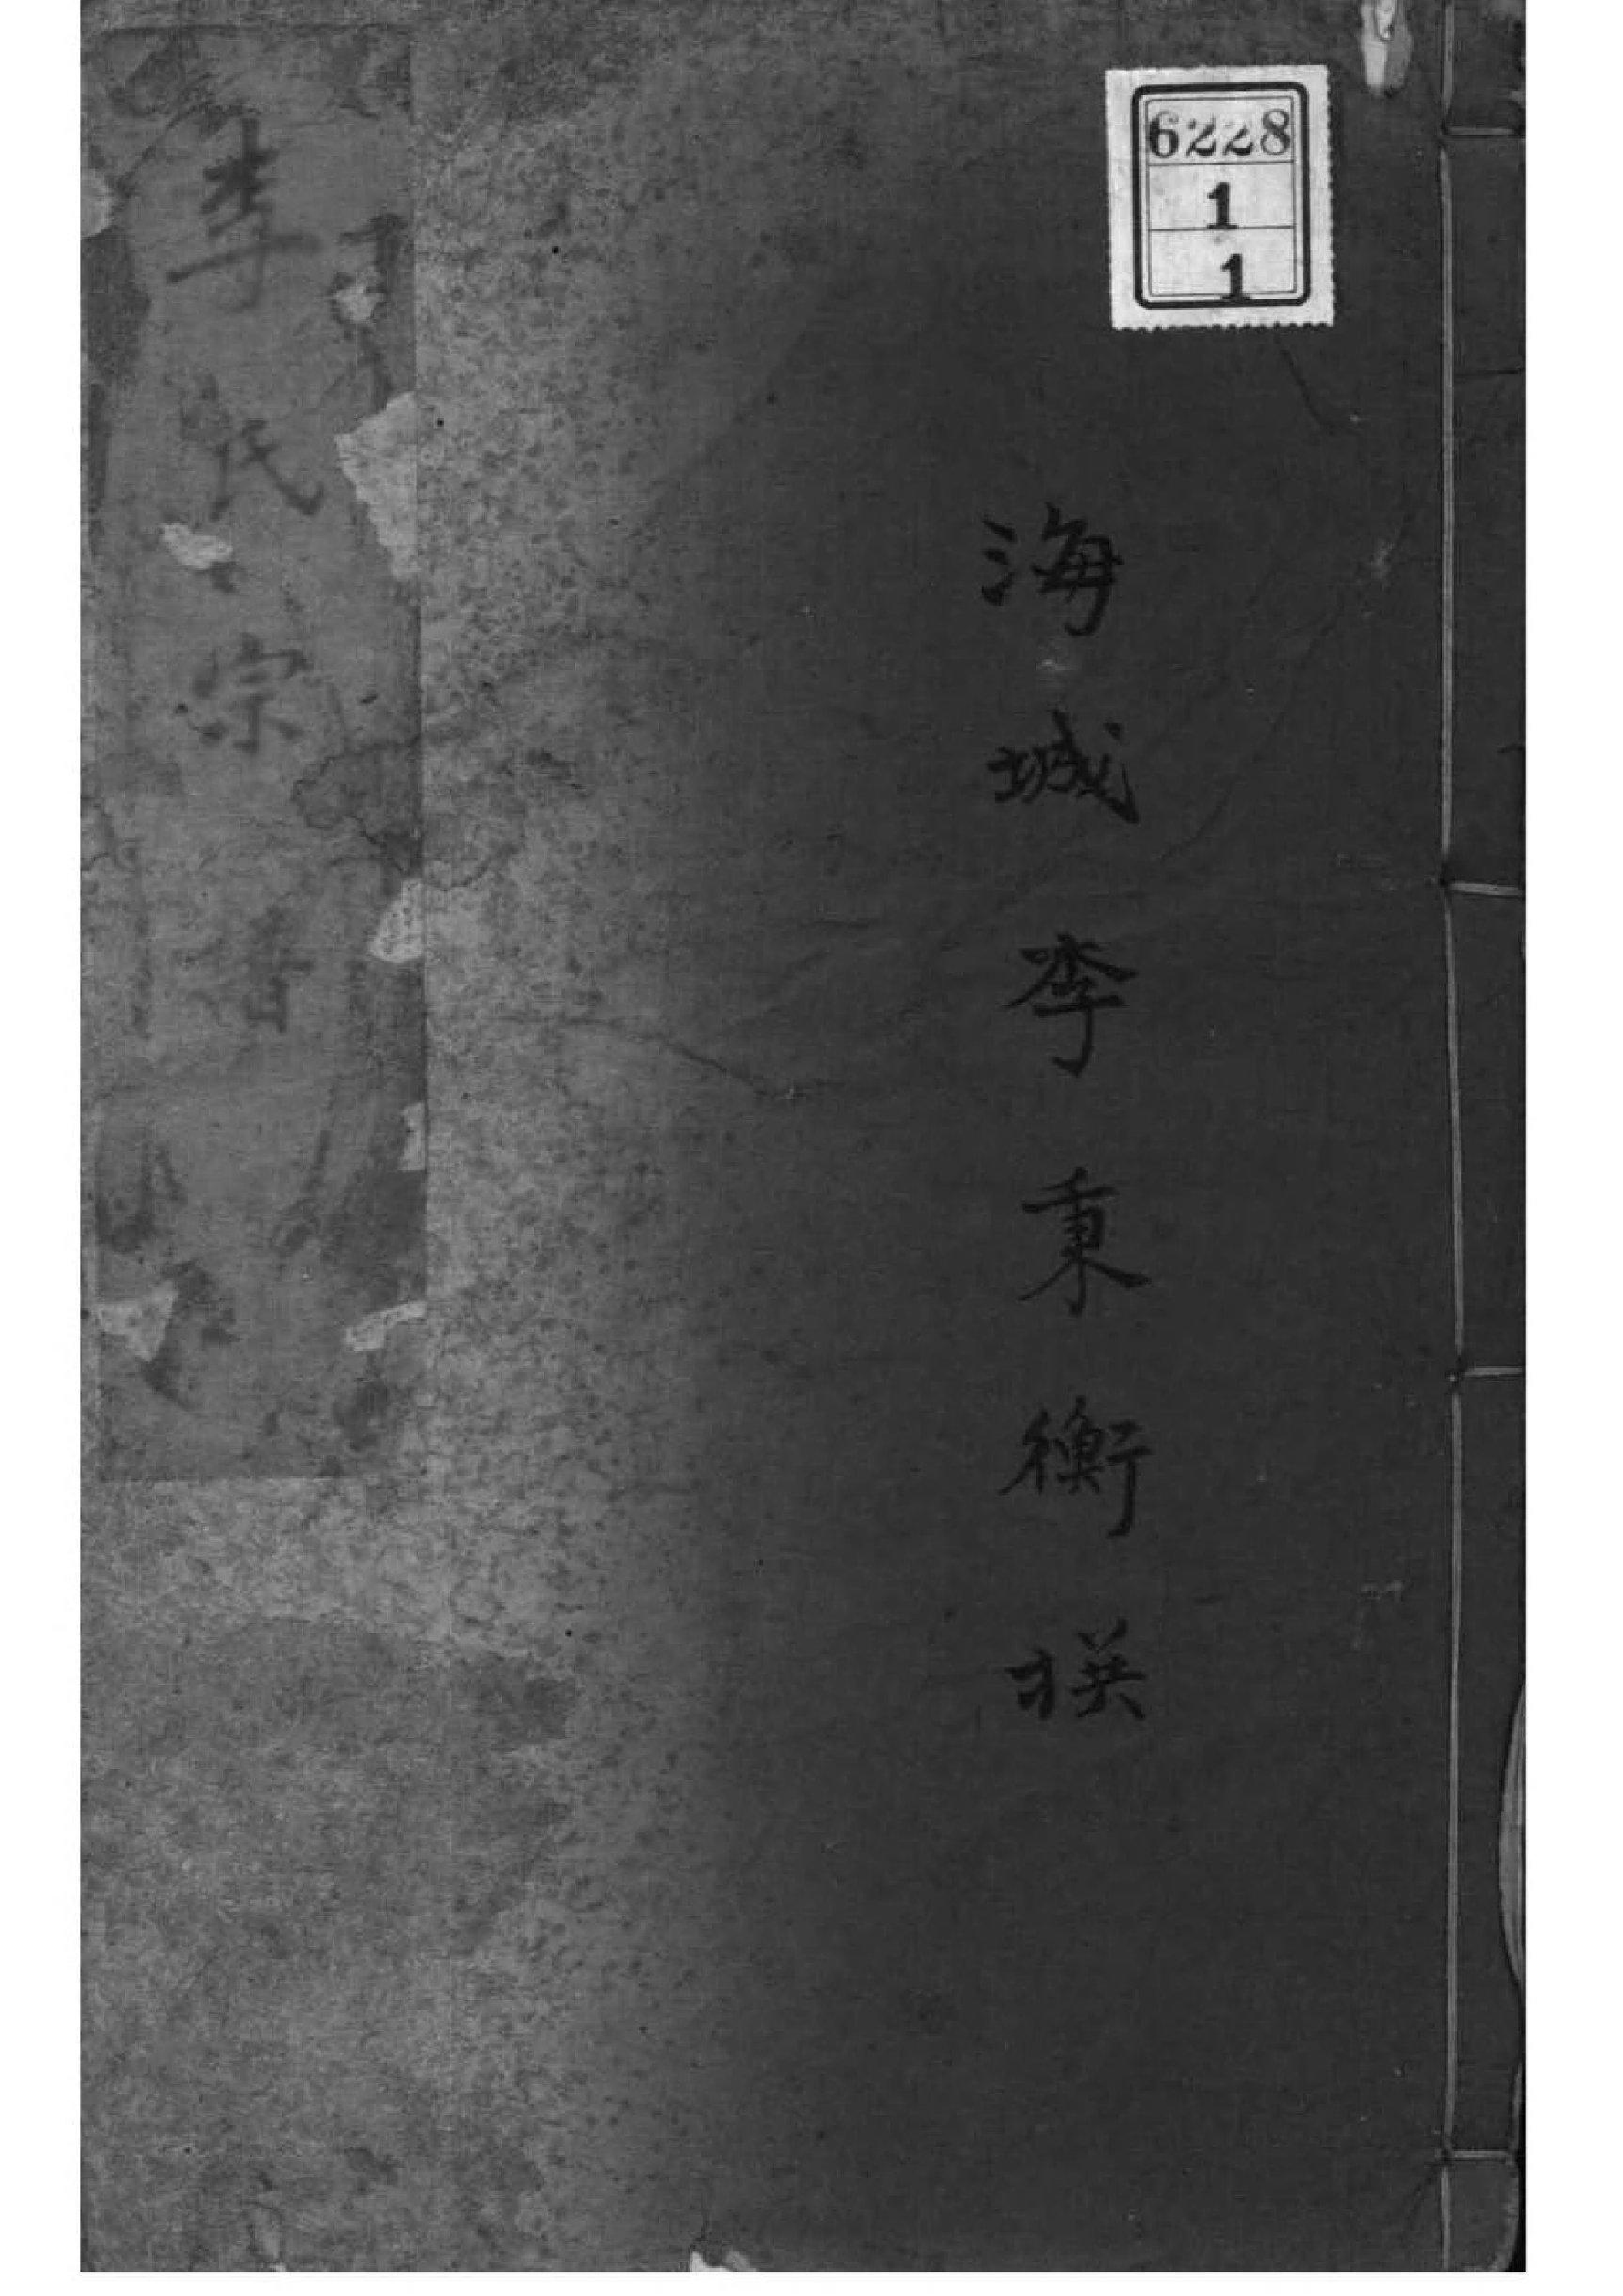 6228
1
1
海城李秉衡㨪
李氏宗譜